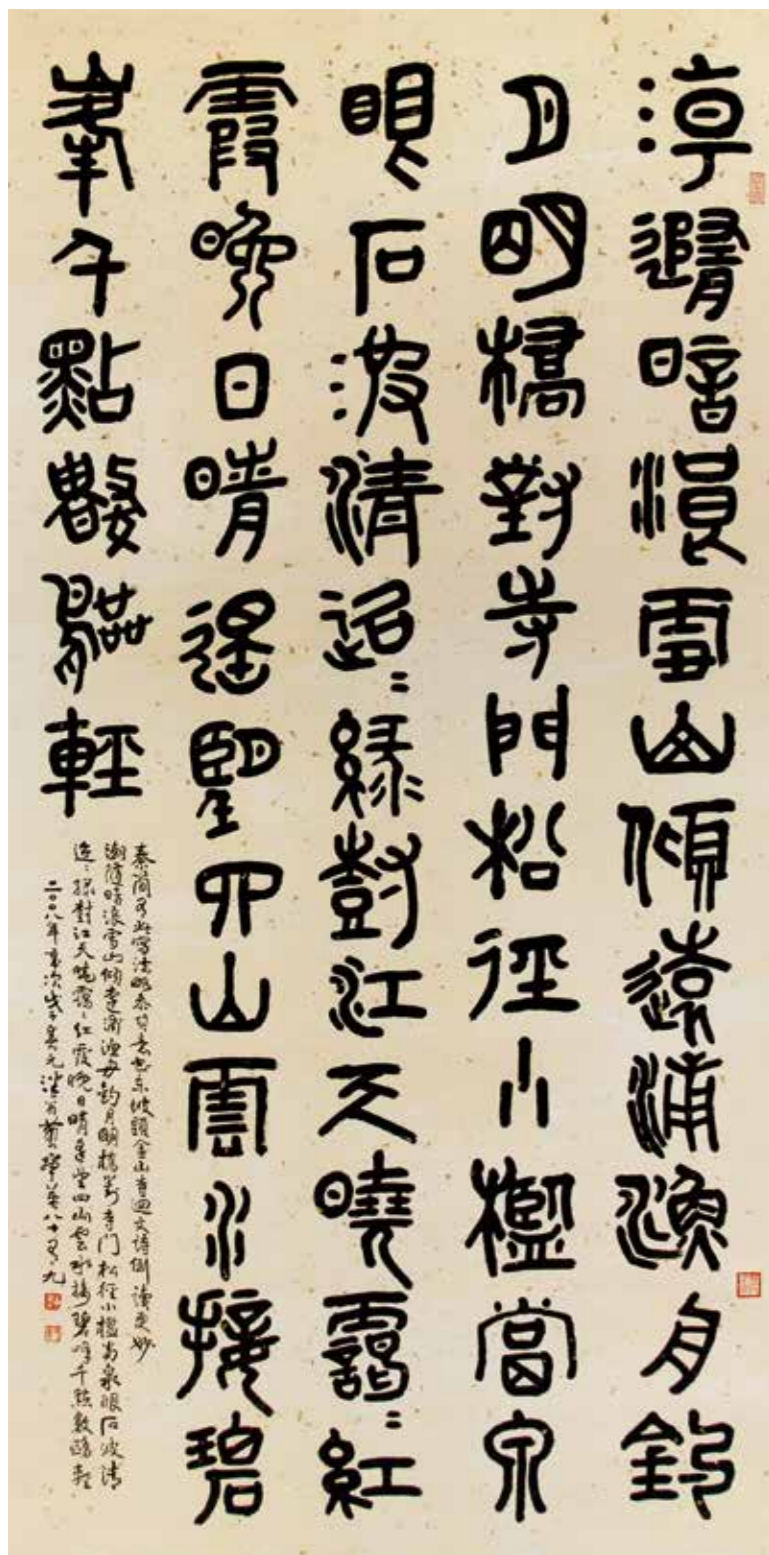 潮隨暗浪雪山傾遠浦漁舟釣
月明橋對寺門松徑小檻當泉
眼石波清迢〻綠樹江天曉靄〻紅
霞晚日晴遙望四山雲水接碧
峯千點數鷗輕
秦簡有此寫法略參其意書東坡題金山寺迴文詩倒讀更妙
潮隨暗浪雪山傾遠浦漁舟釣月明橋對寺門松徑小檻當泉眼石波清
迢〻綠樹江天曉靄〻紅霞晚日晴遙望四山雲水接碧峰千點數鷗輕
二〇〇八年歲次戊子 八十有九